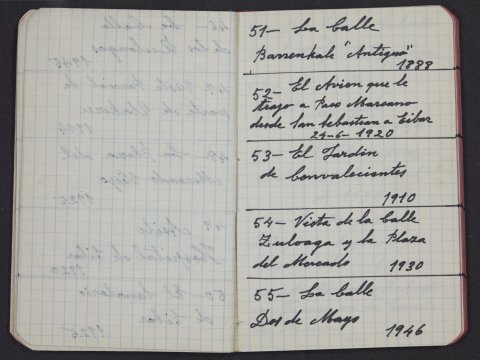 51- La Calle
Barrenkale "Antigua"
1888
52- El Avion que le
trajo a Paco Marcano
desde San Sebastian a Eibar
24-6-1920
53- El Jardin
de Convalecientes
1910
54- Vista de la Calle
Zuloaga y la Plaza
del Mercado 1930
55- La Calle
Dos de Mayo
1946